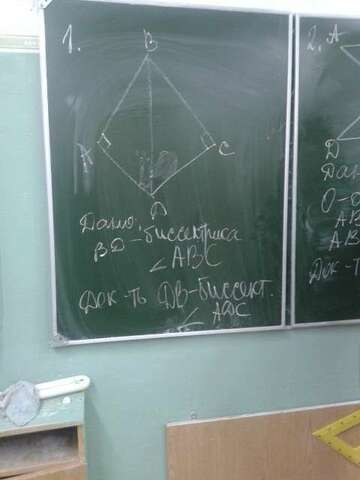 1.
B
A
C
D
Дано:
BD - биссектриса
∠ABC
Док-ть DB-биссект.
∠ADC
2. A
D
Дан
O-
AB
AB
Док-т